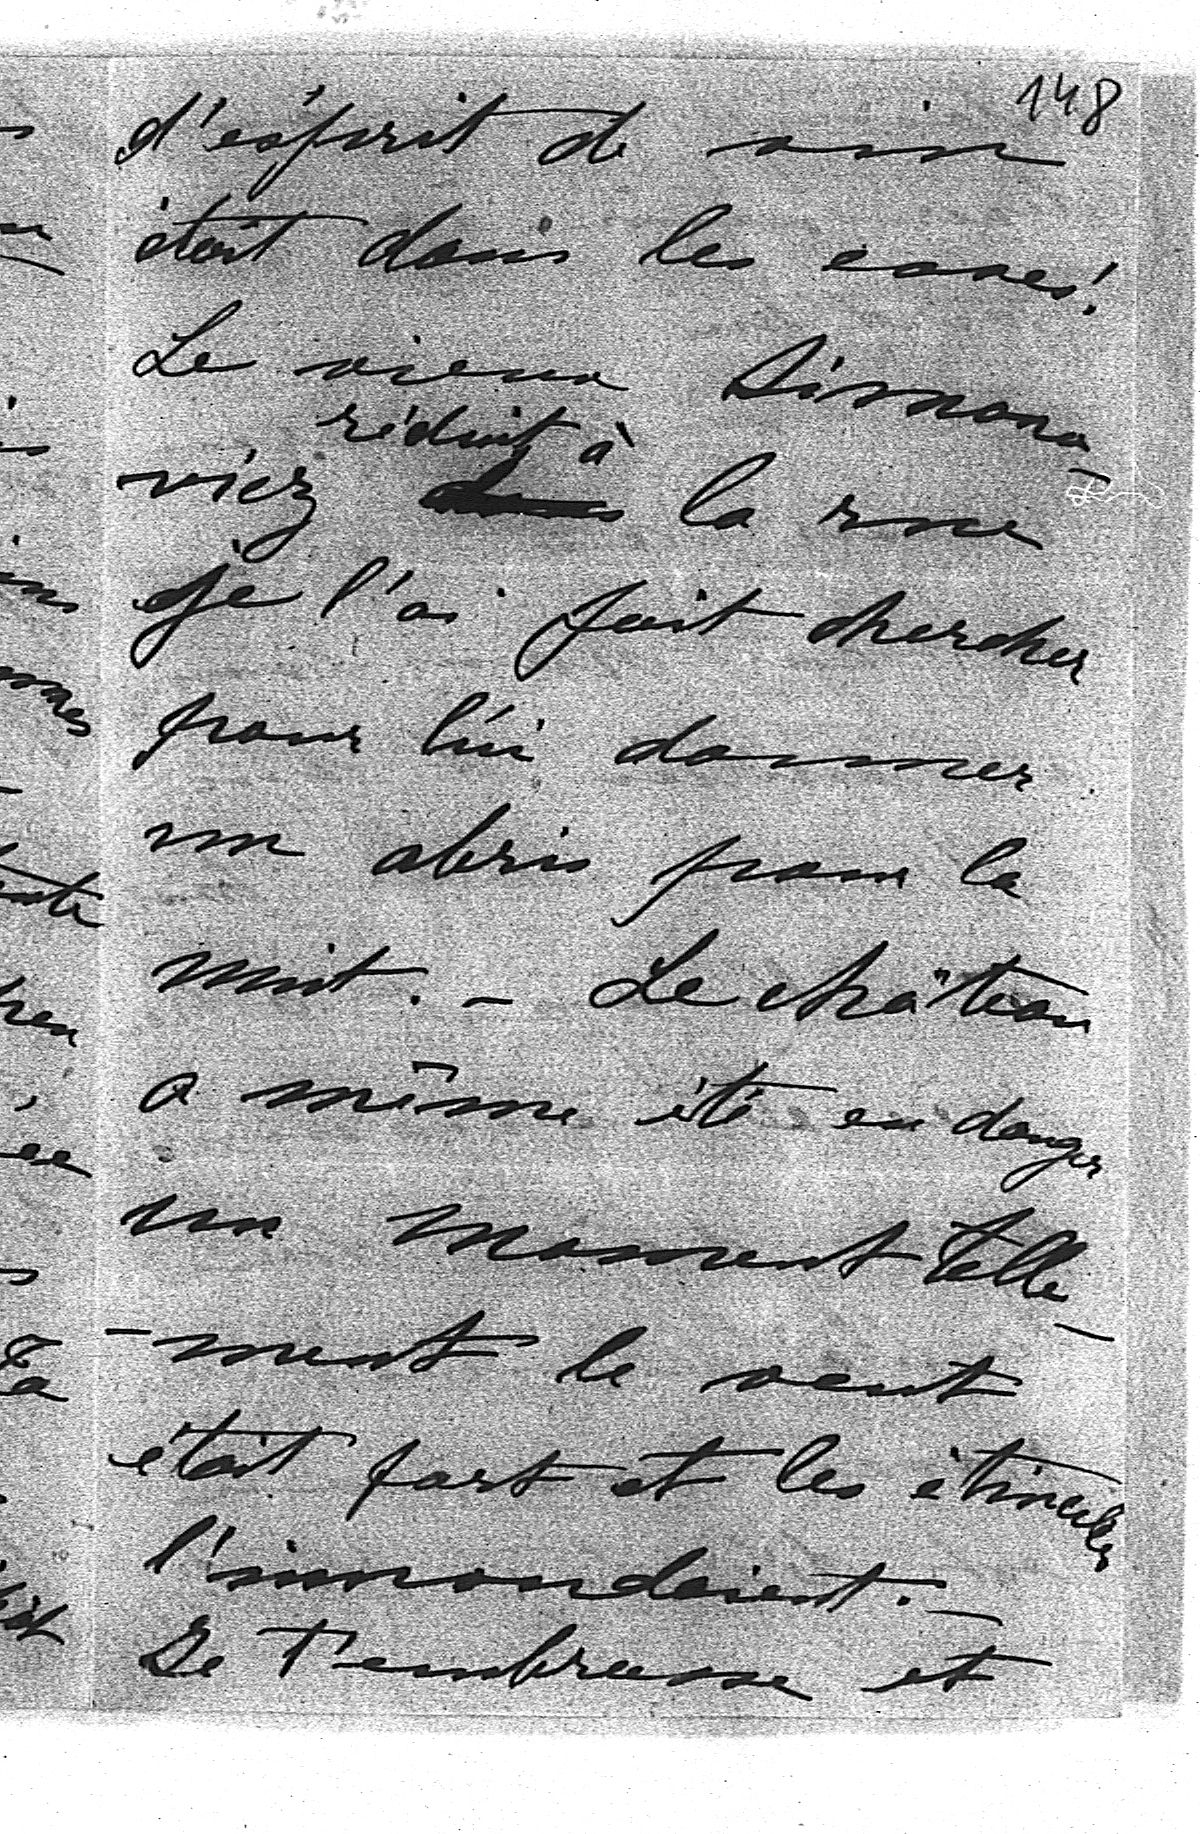 148
d'ésprit de vin
était dans les caves!
Le vieux Simono-
réduit à
viez la rue
je l'ai fait chercher
pour lui donner
un abris pour la
nuit. - Le château
a même été en danger
un moment telle-
-ment le vent
était fort et les étincelles
l'innondaient. -
Je t'embrasse et